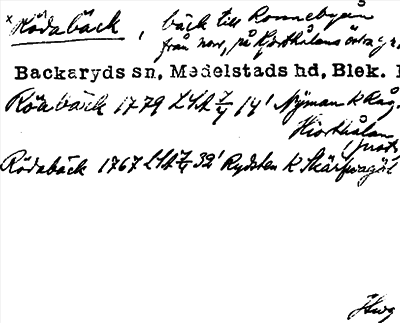 Rödabäck, bäck till Ronnebyån
från norr, på Hjorthålans östra
Backaryds sn, Medelstads hd, Blek.
Röa bäck 1779 LSA 14' Nyman K Råg.
Hiorthålan
Rödabäck 1767 LSA 32' Rydsten K Skärfvagöl